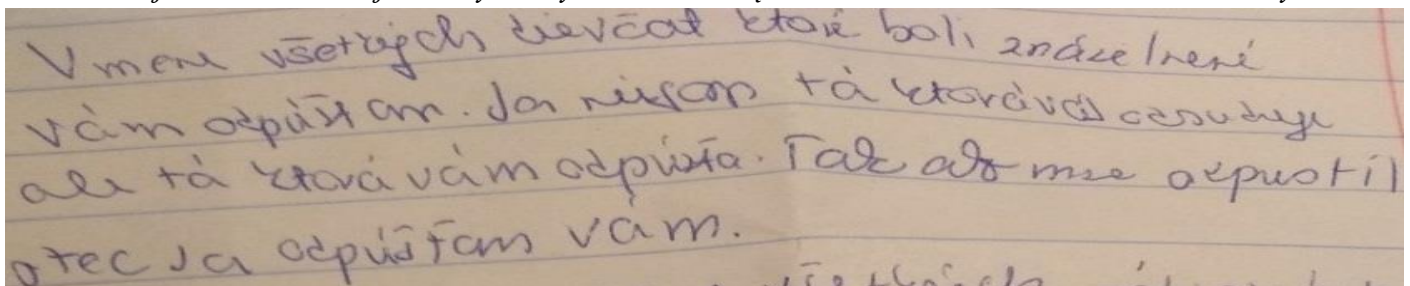 V mene všetkých dievčat ktoré boli znázelnené
vám odpúšťam. Ja niesom tá ktorá vás odsudzuje
ale tá ktorá vám odpúšťa. Tak ako mne odpustil
otec Ja odpúšťam vám.